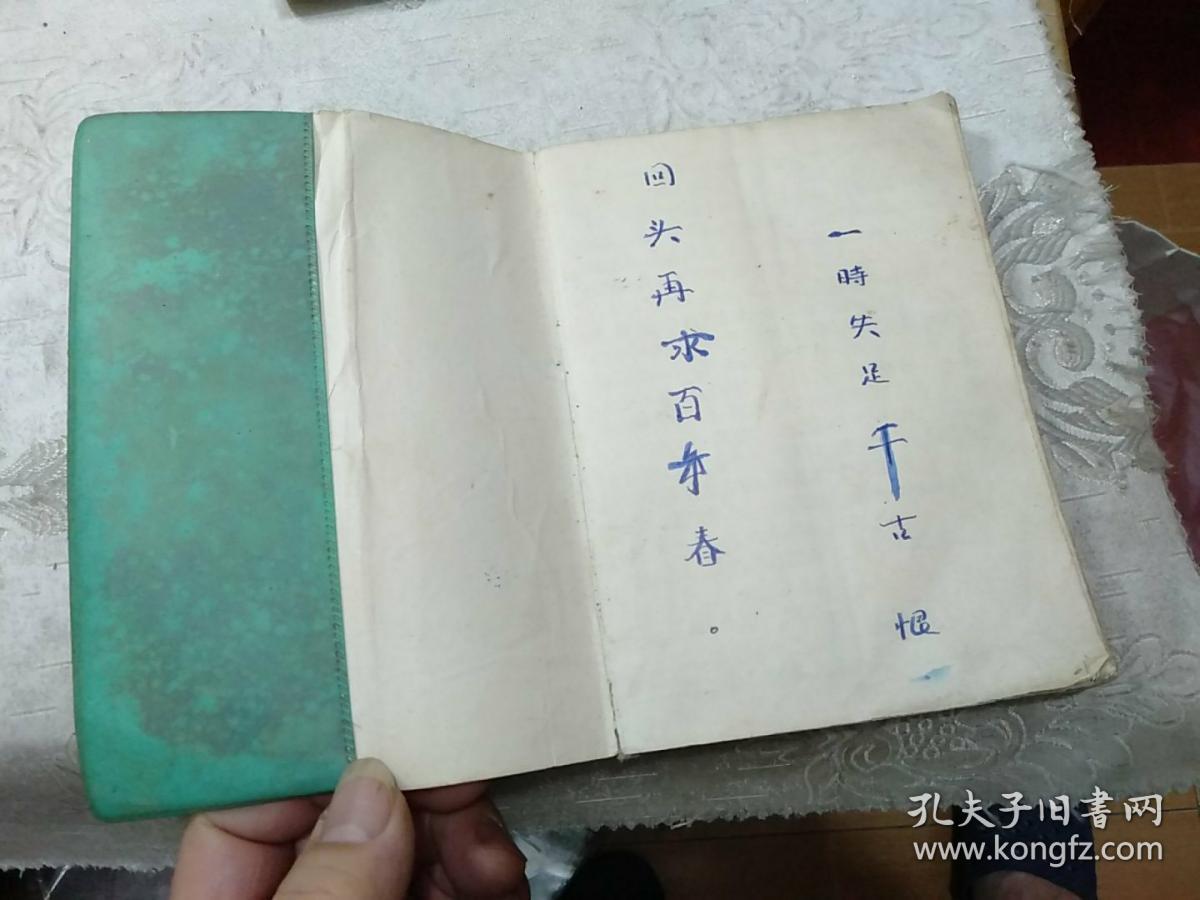 一時失足千古恨
回头再求百年春。
孔夫子旧書网
www.kongfz.com